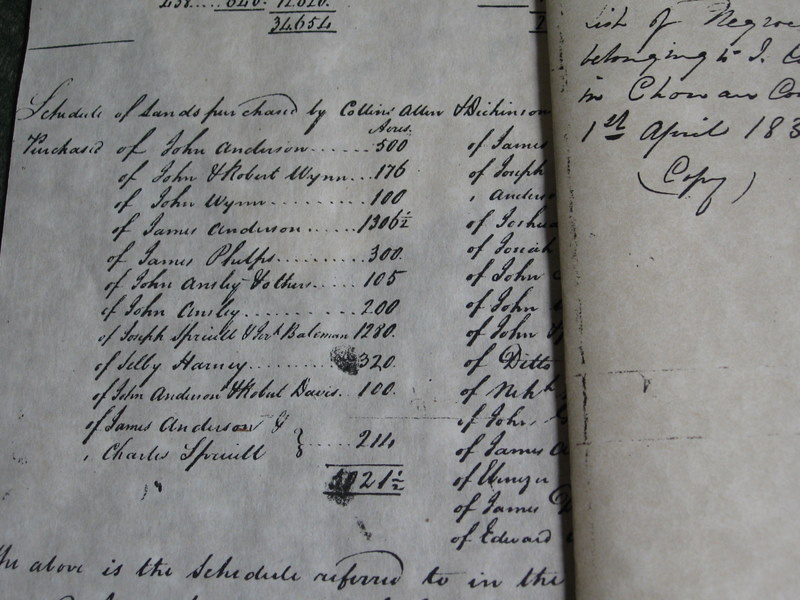 34654
Schedule of Lands purchased by Collins Allen & Dickinson
Acres
Purchased of John Anderson......500
of John & Robert Wynn...176
of John Wynn.........100
of James Anderson......1306½
of James Phelps........300.
of John Ansley & others....105
of John Ansley.........200
of Joseph Spruill & Jerh. Bateman 1280.
of Selby Harney..........320.
of John Anderson & Robert Davis..100.
of James Anderson &
, Charles Spruill } .....214
21½
of James
of Joseph
, Anders
of Joshu
of Josiah
of John
of John
of John
of Ditto
of Neh
of John
of James
of Ebenezer
of James
of Edward
The above is the Schedule referred to in the
List of Negroe
belonging to J. Co
in Chowan Cou
1st April 183
(Copy)